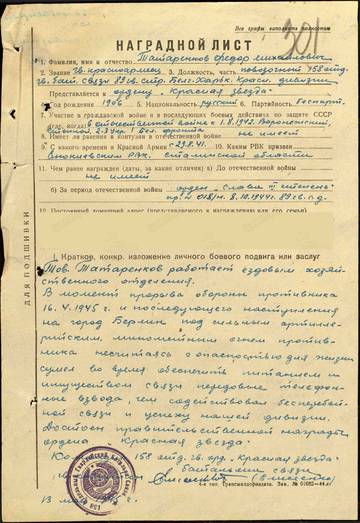 Все графы заполнять полностью
НАГРАДНОЙ ЛИСТ
1. Фамилия, имя и отчество Татаренков Федор Михайлович
2. Звание гв. красноармеец 3. Должность, часть повозочный 158 отд.
гв. бат. связи 89 гв. стр. Белг-Харьк. Красн. дивизии
Представляется к ордену „Красная звезда“
4. Год рождения 1906 5. Национальность русский 6. Партийность беспарт.
7. Участие в гражданской войне и последующих боевых действиях по защите СССР
(где, когда) в отечественной войне с 1.8.1942 Воронежский,
Степной, 2-3 Укр. 1 Бел. фронта
8. Имеет ли ранения и контузии в отечественной войне не имеет
9. С какого времени в Красной Армии с 29.8.41. 10. Каким РВК призван
РВК, Сталинской области
11. Чем ранее награжден (даты, за какие отличия) а) До отечественной войны
не имеет
б) За период отечественной войны орден „Слава III степень“
пр. № 018/н. 8.10.1944г 89 гв. с.д.
12. Постоянный домашний адрес (представляемого к награждению или его семьи)
ДЛЯ ПОДШИВКИ
I. Краткое, конкр. изложение личного боевого подвига или заслуг
Тов. Татаренков работает ездовым хозяй-
ственного отделения.
В момент прорыва обороны противника
16.4.1945 г. и последующего наступления
на город Берлин под сильным артилле-
рийским, минометным огнем против-
ника несчитаясь с опасностью для жизни
сумел во время обеспечить питанием и
имуществом связи передовые телефон-
ные взвода, чем содействовал бесперебой-
ной связи и успеху нашей дивизии.
Достоен правительственной награды
ордена Красная звезда.
158 отд. гв. орд. „Красная звезда“
батальона связи
4-я тип. Трансжелдориздата. Зак.